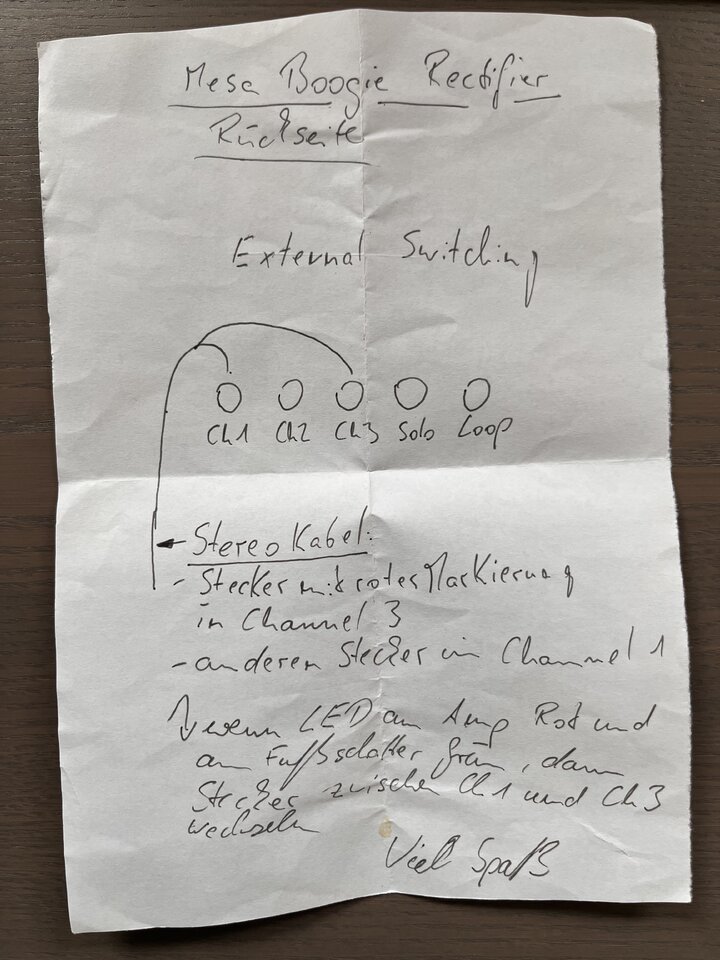 Mesa Boogie Rectifier
Rückseite
External Switching
Ch1 Ch2 Ch3 Solo Loop
Stereo Kabel:
- Stecker mit roter Markierung
in Channel 3
- anderen Stecker in Channel 1
wenn LED am Amp Rot und
am Fußschalter grün, dann
Stecker zwischen Ch1 und Ch3
wechseln
Viel Spaß